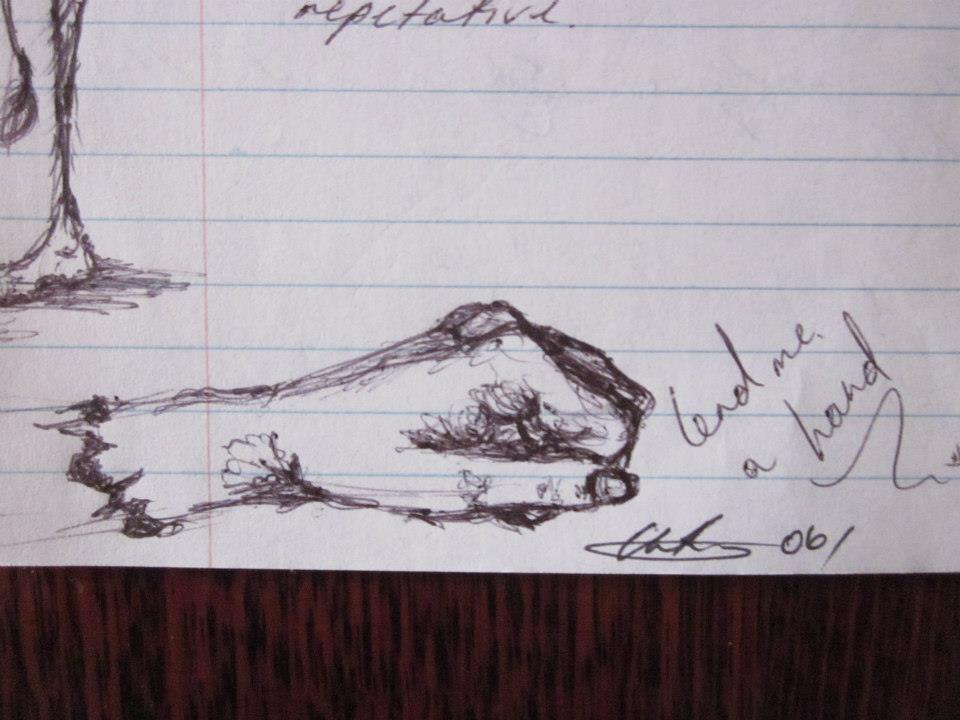 repetative.
lend me
a hand
06/